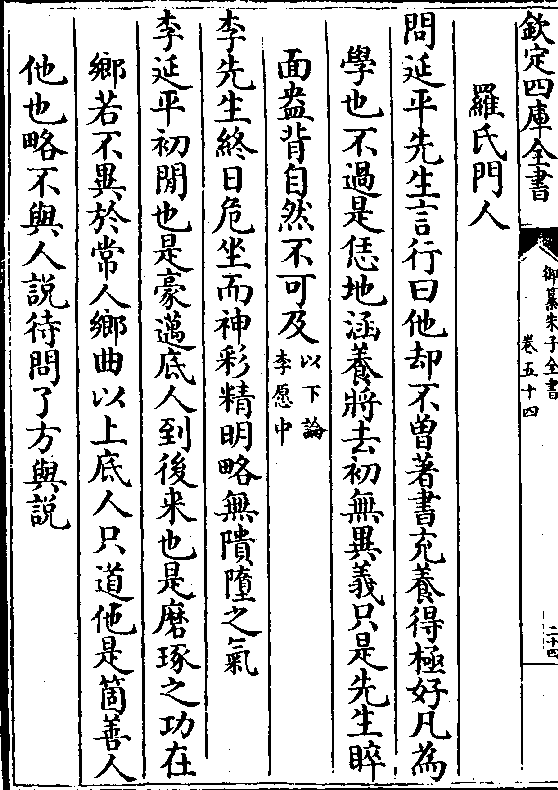 欽定四庫全書
御纂朱子全書
卷五十四
二十四
羅氏門人
問延平先生言行曰他却不曾著書充養得極好凡為
學也不過是恁地涵養將去初無異義只是先生睟
面盎背自然不可及
以下論
李愿中
李先生終日危坐而神彩精明略無隤墮之氣
李延平初間也是豪邁底人到後来也是磨琢之功在
鄉若不異於常人鄉曲以上底人只道他是箇善人
他也略不與人説待問了方與説